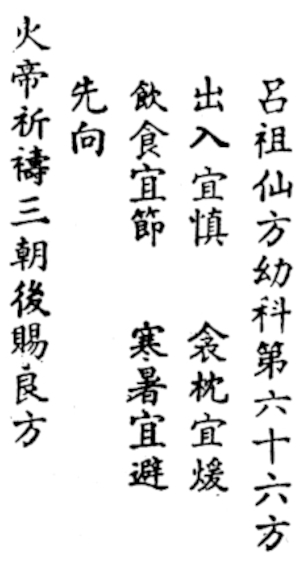 呂祖仙方幼科第六十六方
出入宜慎 衾枕宜煖
飲食宜節 寒暑宜避
先向
火帝祈禱三朝後賜良方